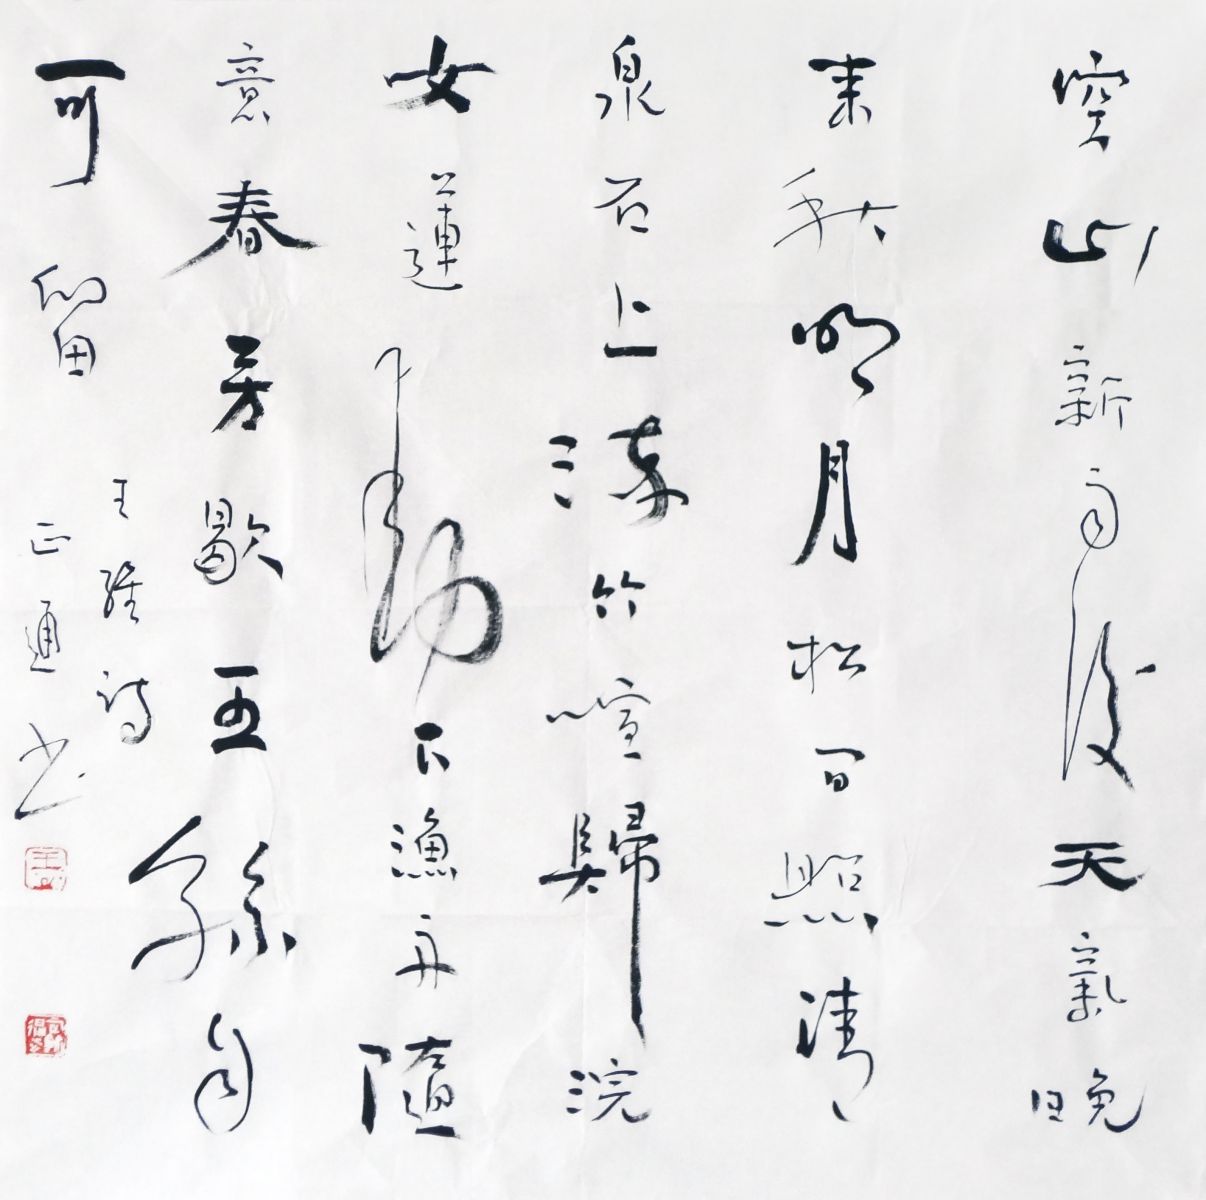 空山新雨後天氣晚
来秋明月松间照清
泉石上流竹喧歸浣
女蓮動下漁舟隨
意春芳歇王孫自
可留
王維詩
正通书